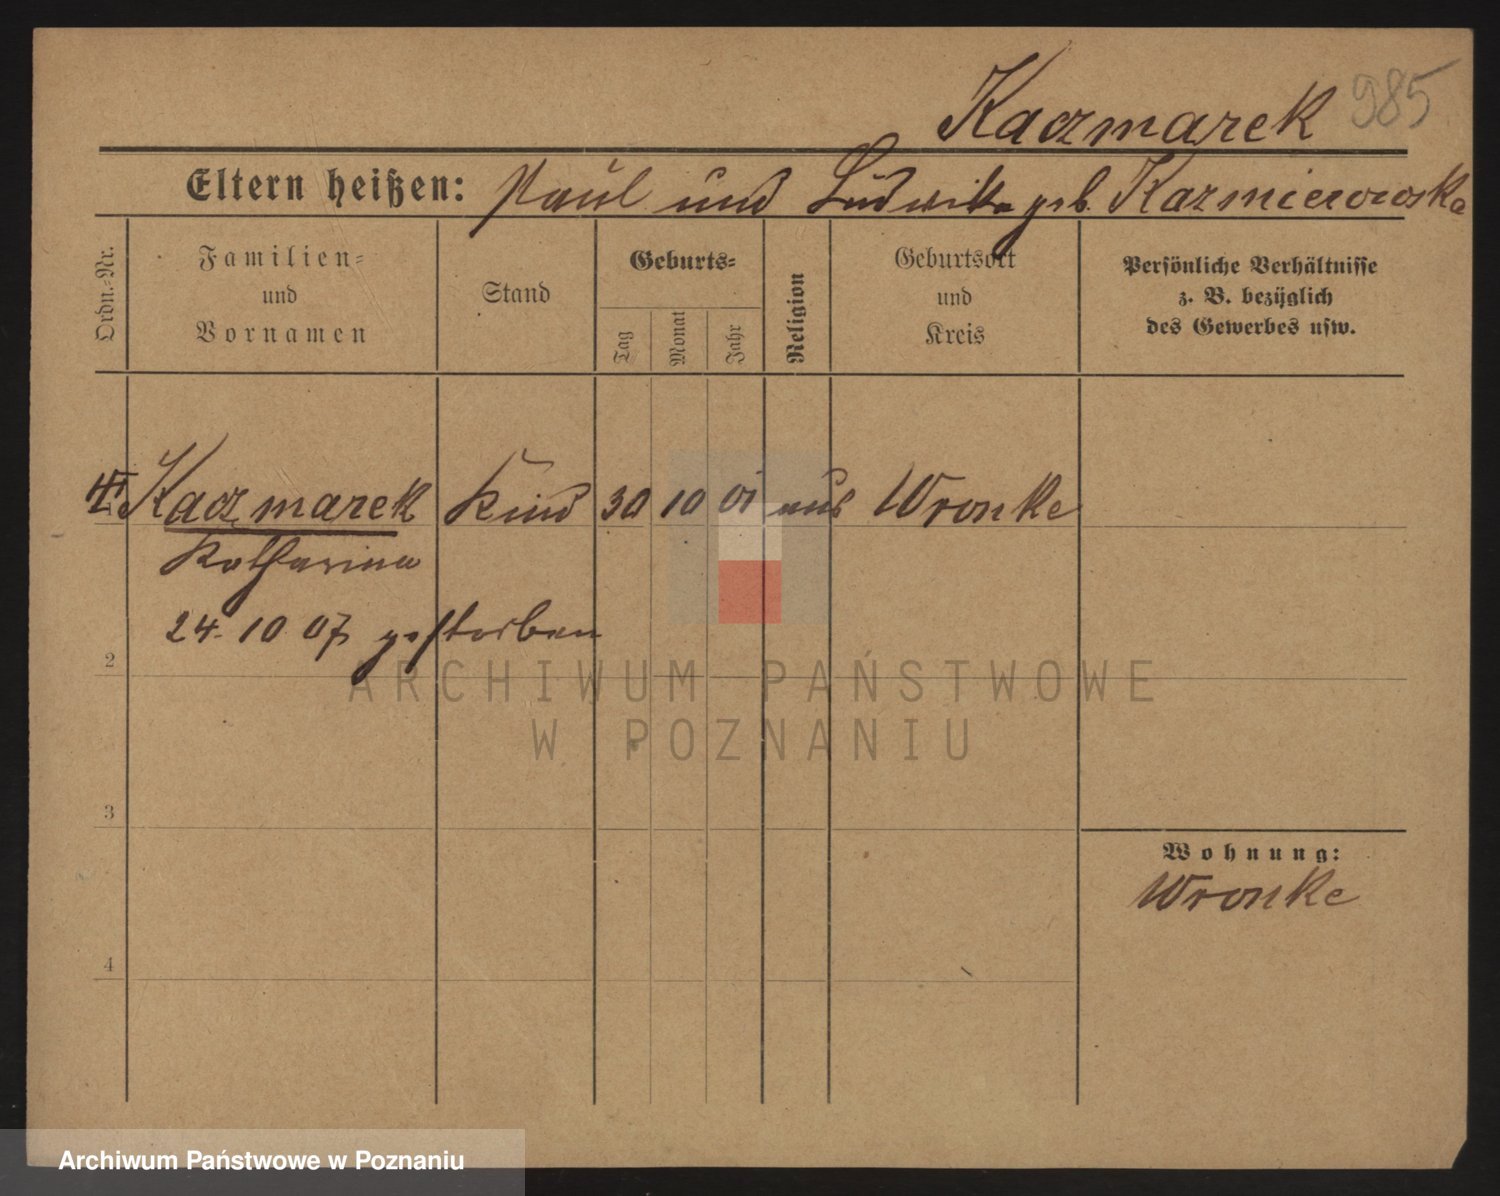 Kaczmarek 985
Eltern heißen: Paul und Ludwika geb. Kazmierowska
Ordn.-Nr.
Familien=
und
Vornamen
Stand
Geburts=
Tag
Monat
Jahr
Religion
Geburtsort
und
Kreis
Persönliche Verhältnisse
z. B. bezüglich
des Gewerbes usw.
Kaczmarek Kind 30 10 01 Wronke
Katharina
24. 10 07 gestorben
2
ARCHIWUM PAŃSTWOWE
W POZNANIU
3
Wohnung:
Wronke
4
Archiwum Państwowe w Poznaniu